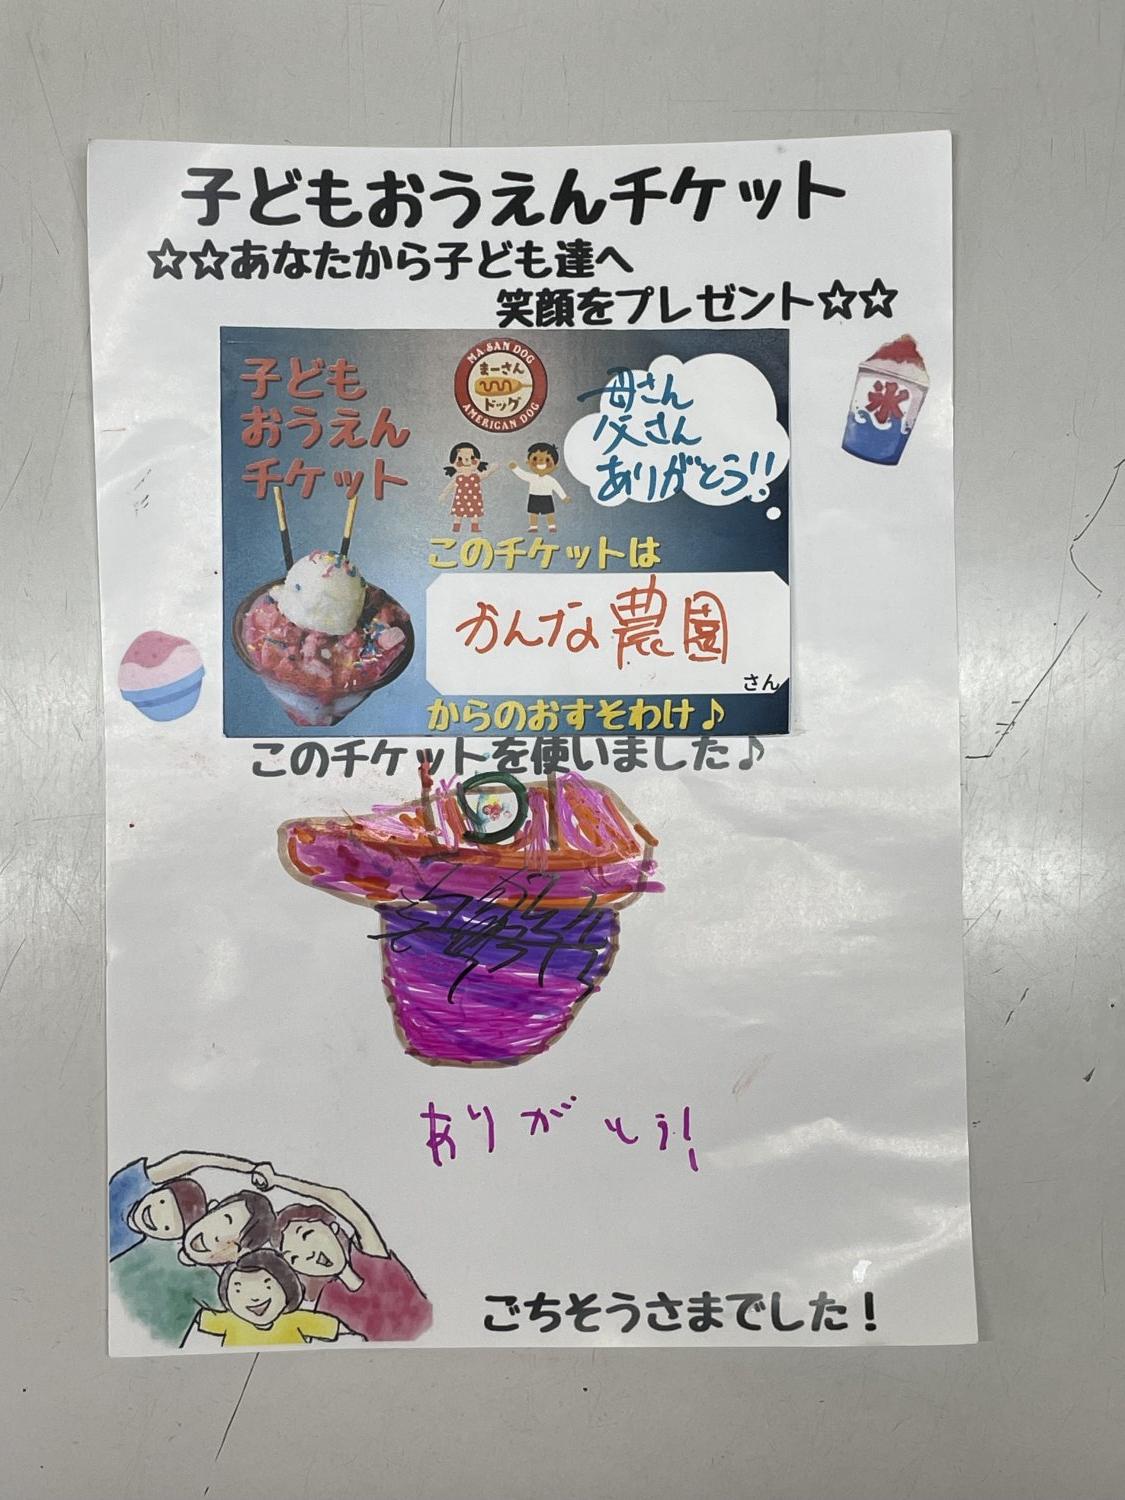 子どもおうえんチケット
☆☆あなたから子ども達へ
笑顔をプレゼント☆☆
氷
子ども
おうえん
チケット
MA SAN DOG
まーさん
ドッグ
AMERICAN DOG
母さん
父さん
ありがとう!!
このチケットは
かんな農園
さん
からのおすそわけ♪
このチケットを使いました♪
ありがとう!
ごちそうさまでした！